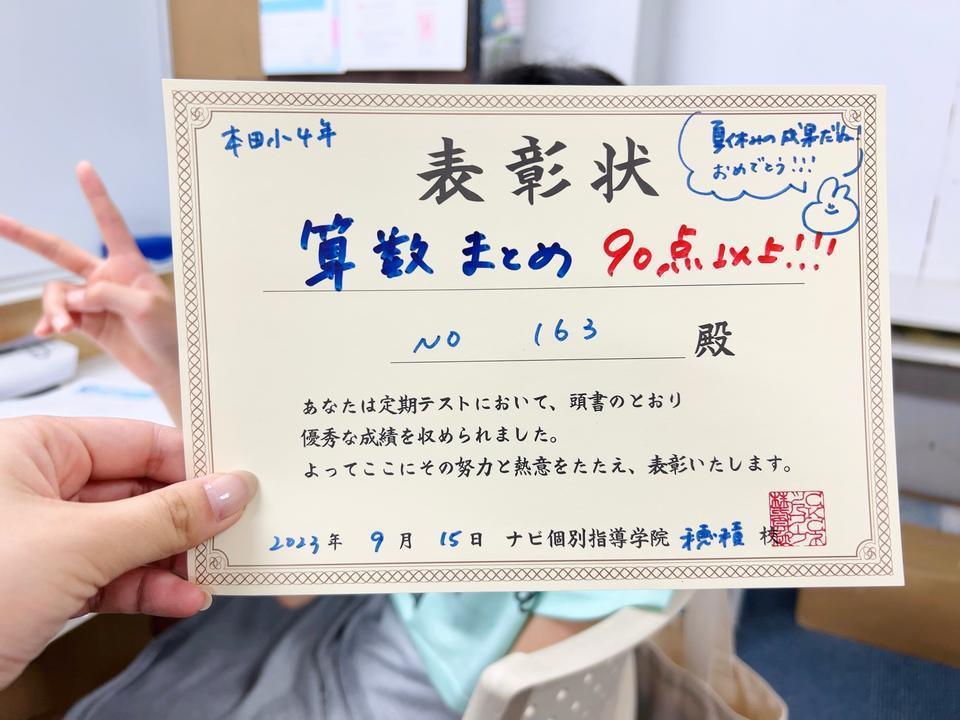 本田小4年
表彰状
夏休みの成果だね!
おめでとう!!!
算数 まとめ 90点以上!!!
NO 163 殿
あなたは定期テストにおいて、頭書のとおり
優秀な成績を収められました。
よってここにその努力と熱意をたたえ、表彰いたします。
2023年 9月 15日 ナビ個別指導学院 穂積 校